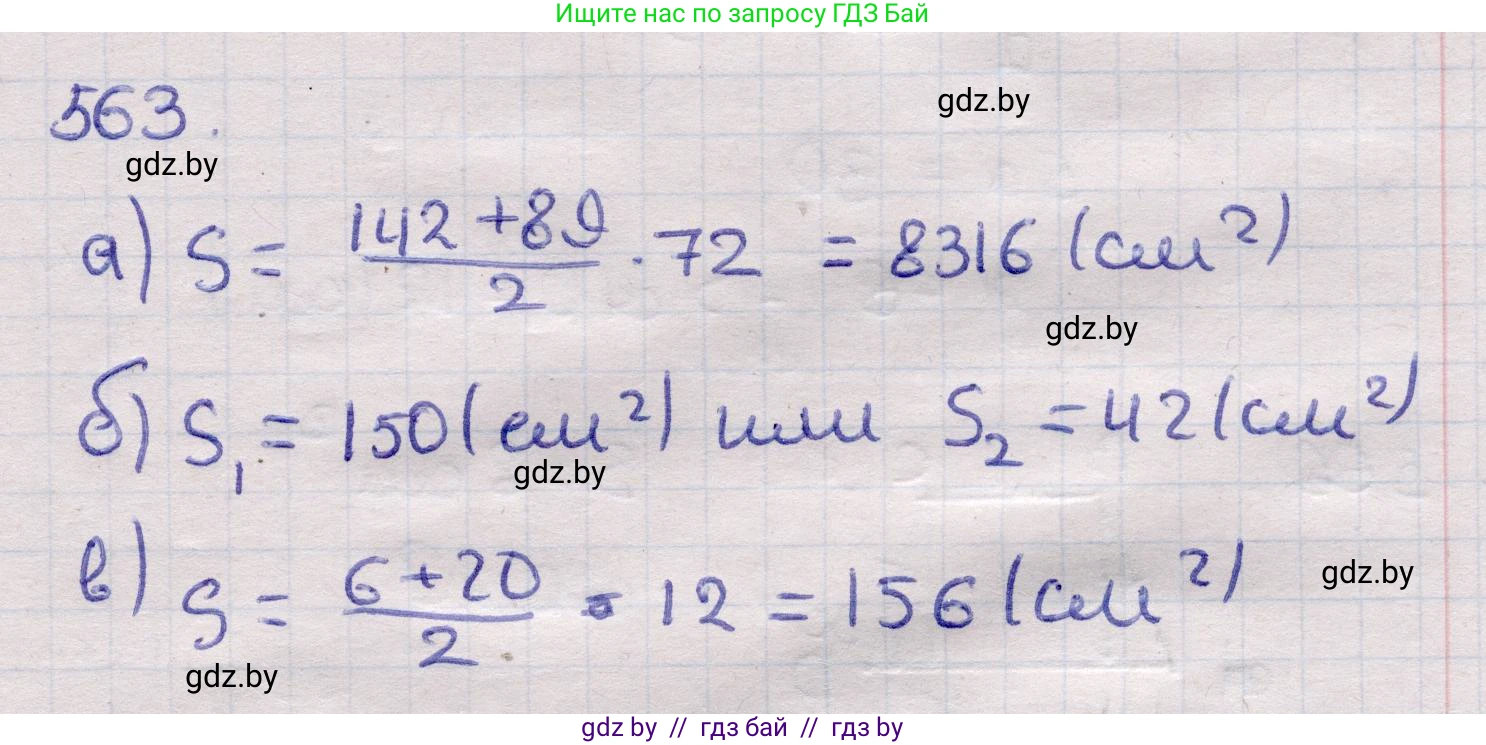 Ищите нас по запросу ГДЗ Бай
563.
gdz.by
gdz.by
а) S = \frac{142+89}{2} · 72 = 8316 (см²)
gdz.by
б) S₁ = 150 (см²) или S₂ = 42 (см²)
gdz.by
в) S = \frac{6+20}{2} · 12 = 156 (см²)
gdz.by
gdz.by
gdz by // гдз бай // гдз by